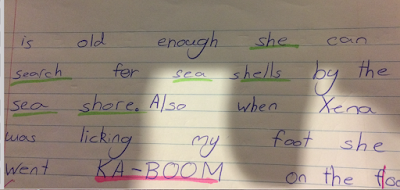 is old enough she can
search for sea shells by the
sea shore. Also when Xena
was licking my foot she
went KA-BOOM on the